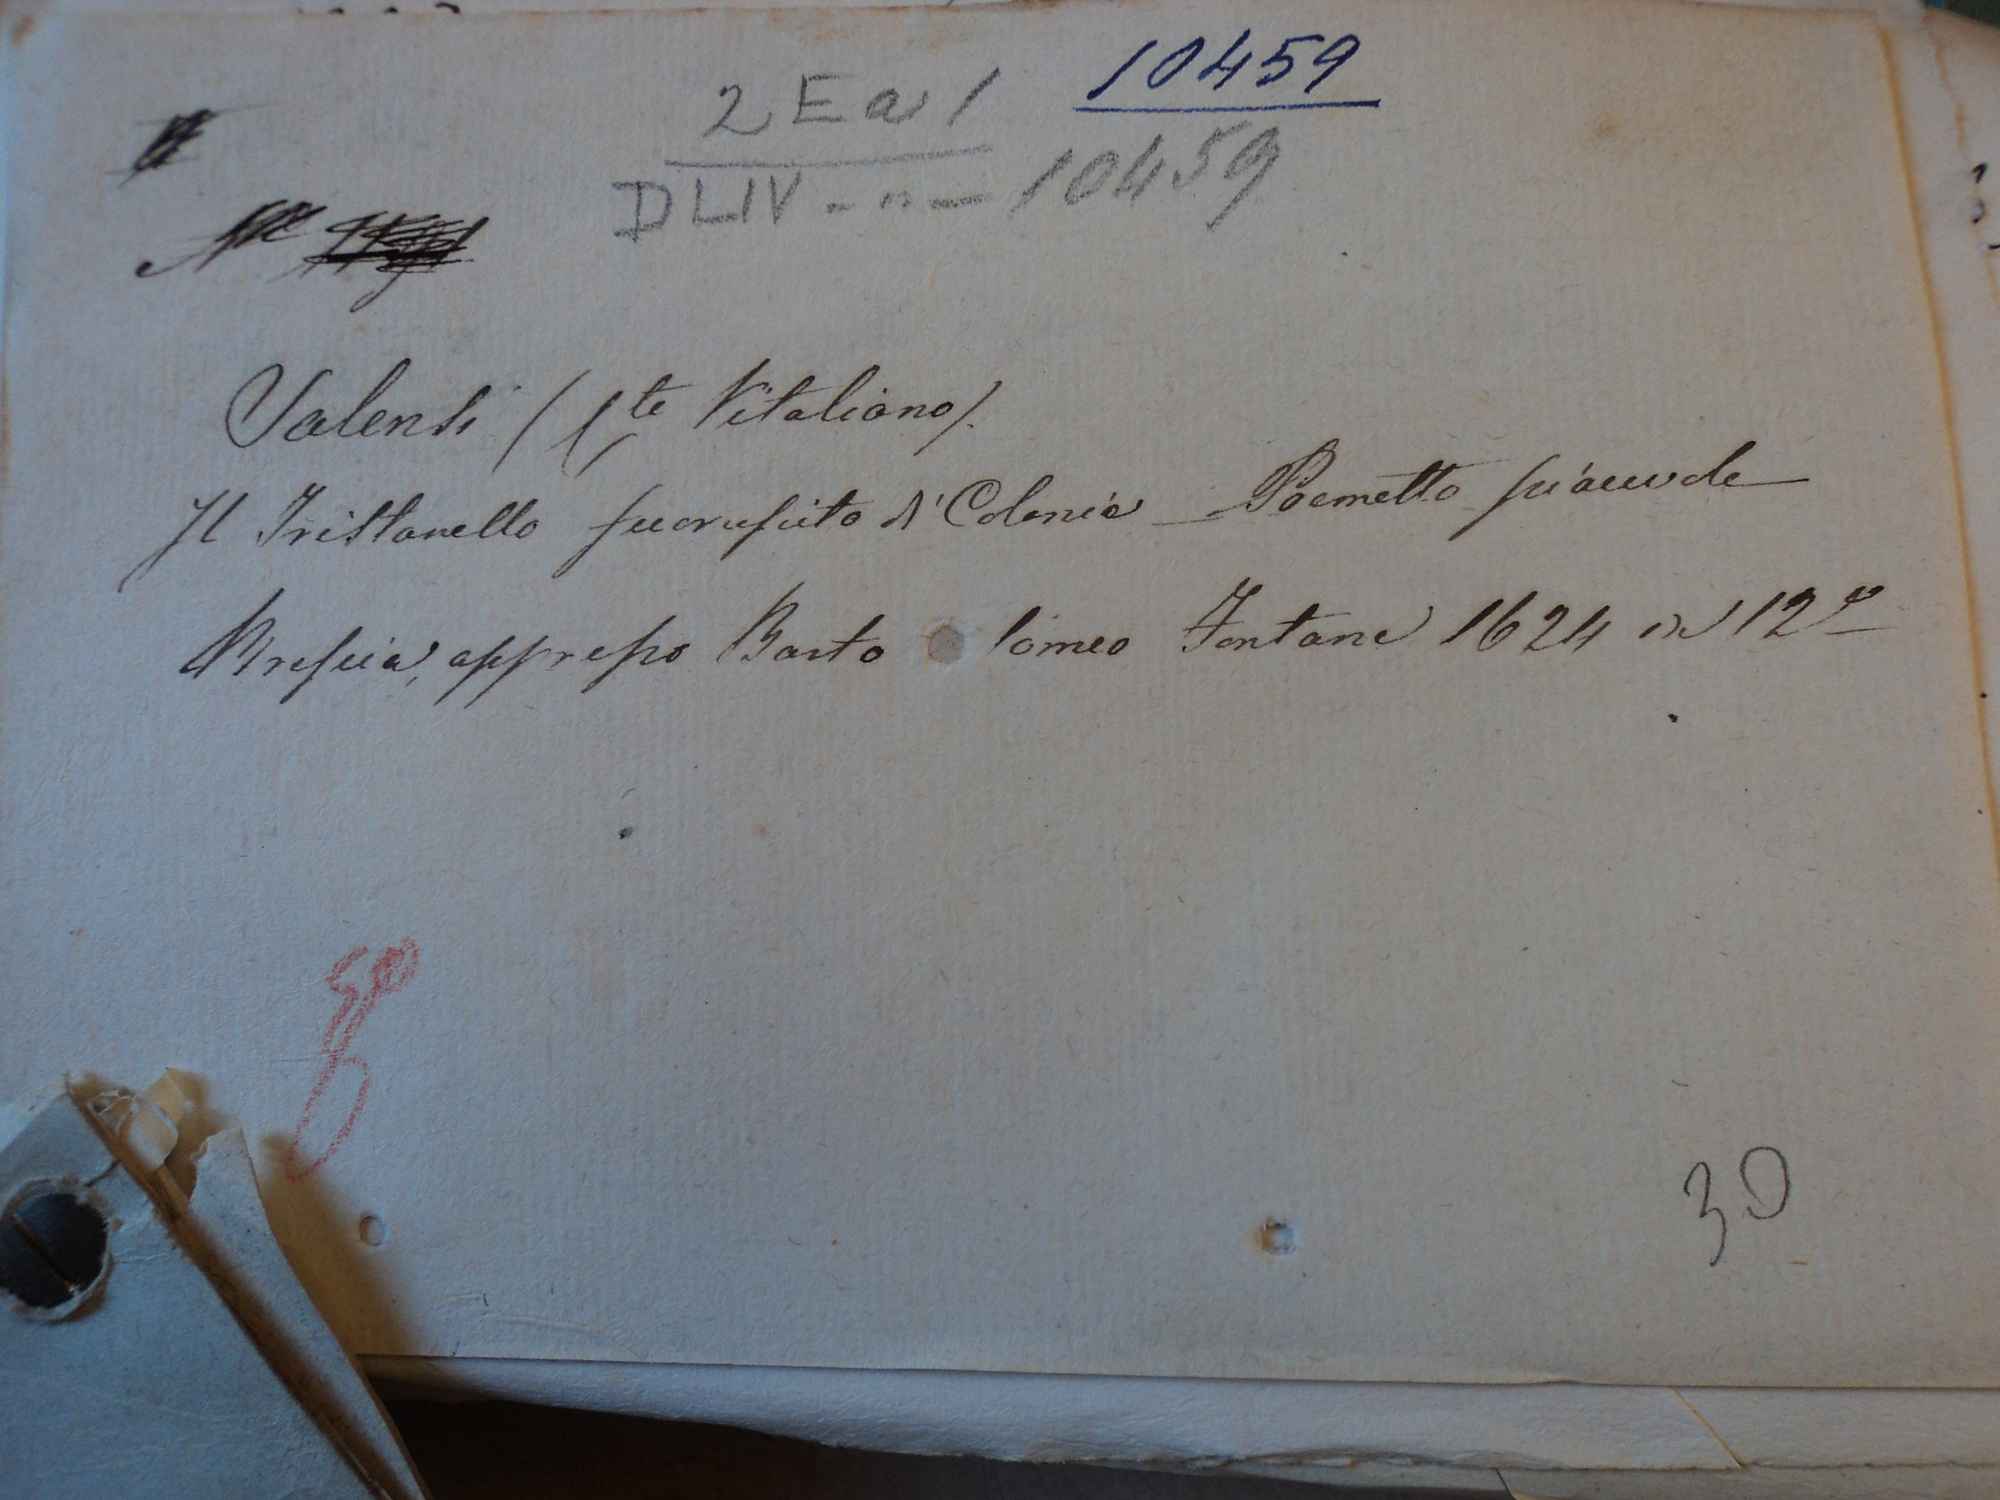 10459
2 E a 1
DLIV - n - 10459
No
Valensi (Cte Vitaliano).
Il Tristanello fuoruscito d' Colonia _ Poemetto
Brescia, appresso Barto lomeo Fontana 1624 in 12º
30